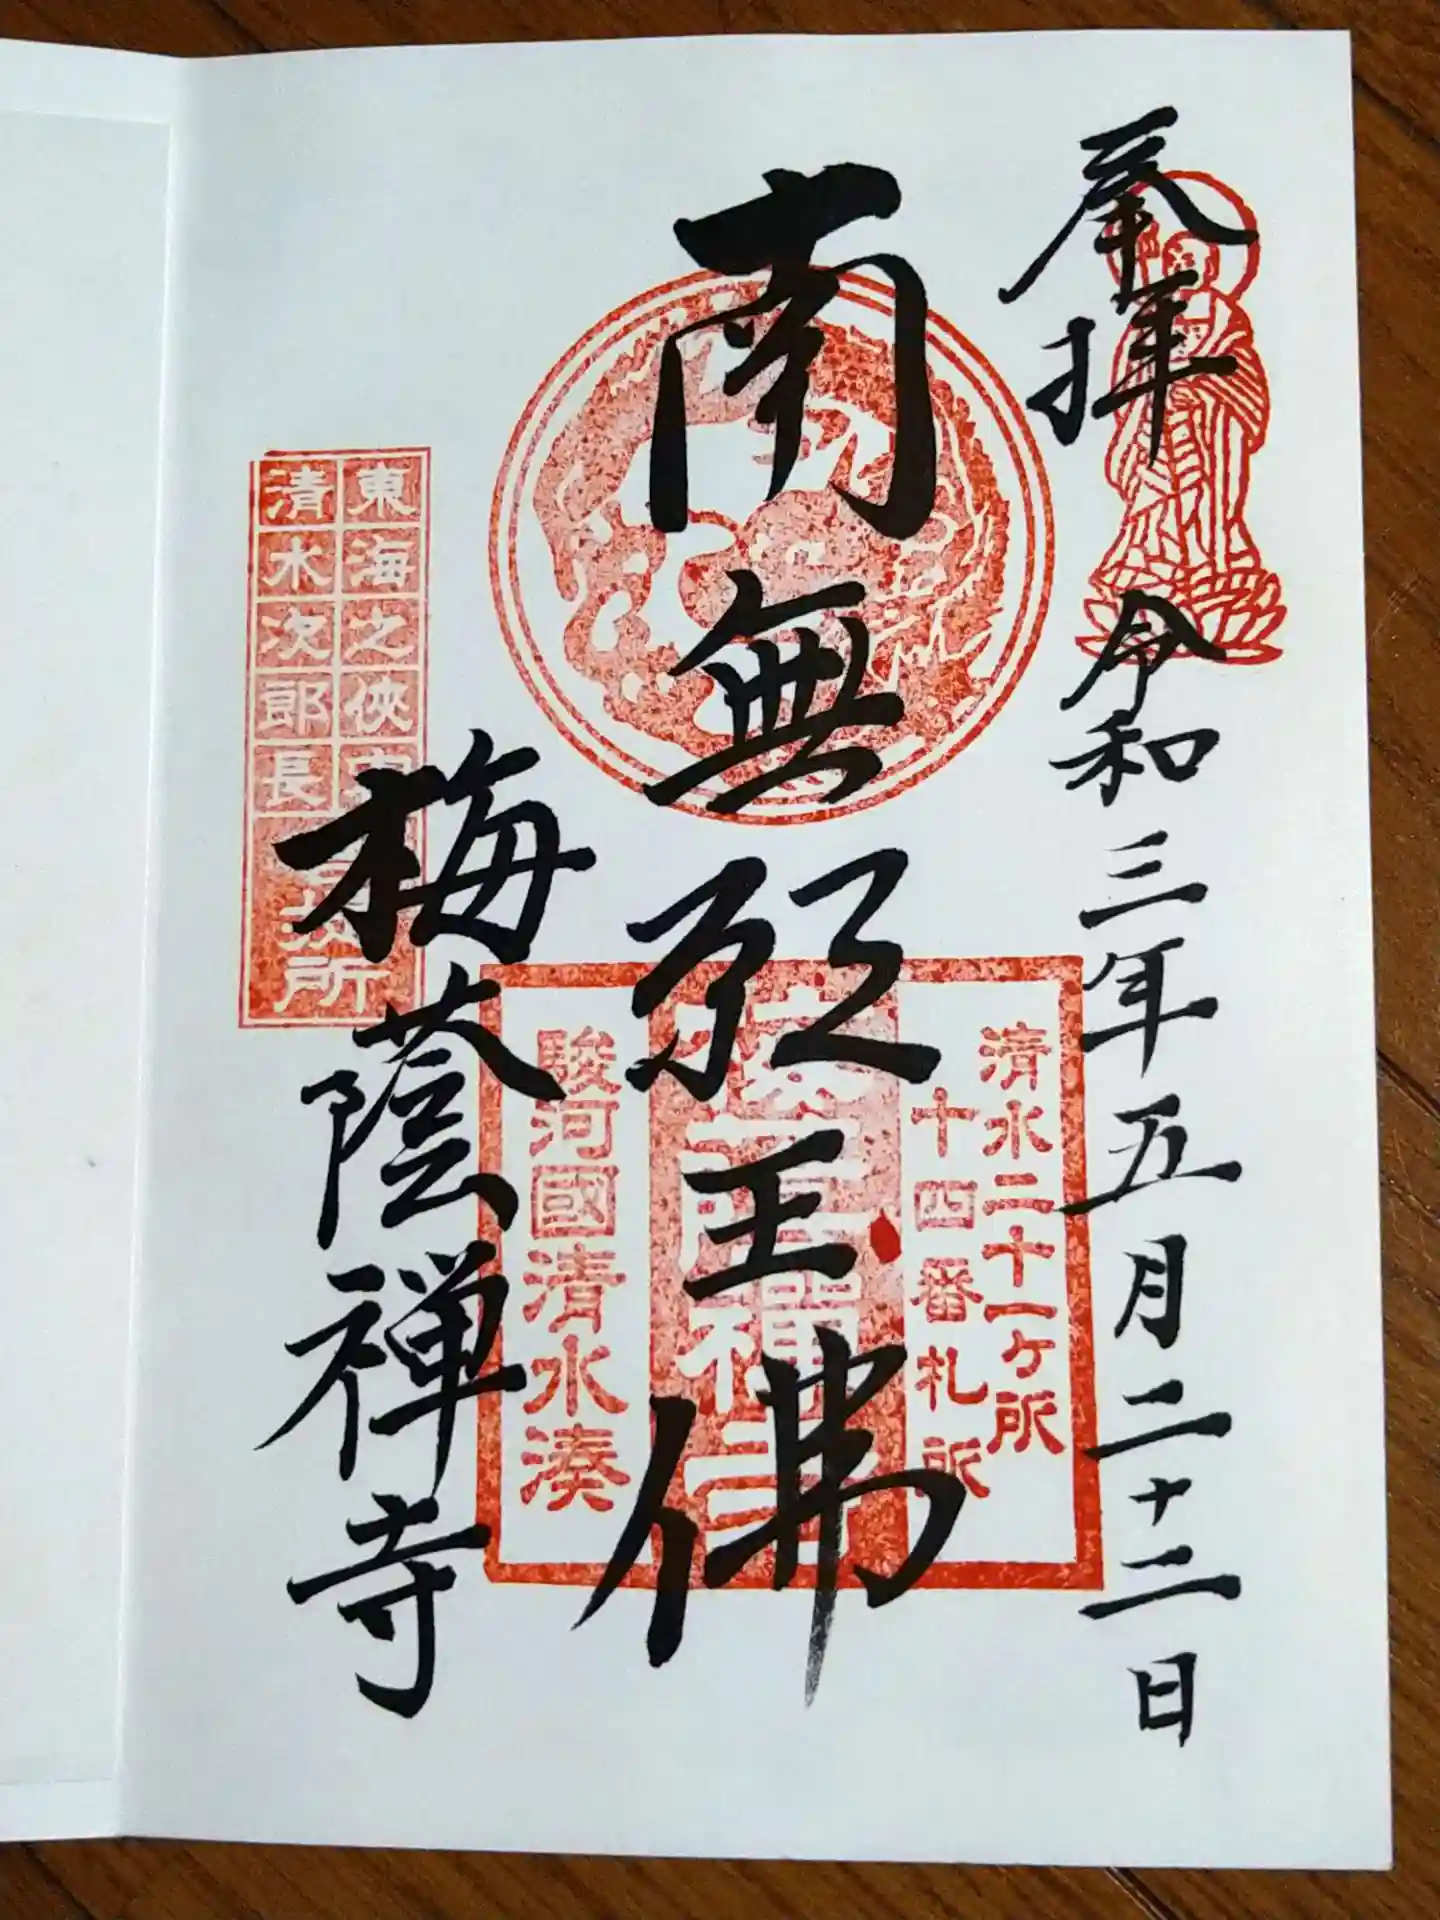 奉拝
令和三年五月二十二日
清水二十一ヶ所
十四番札所
南無願王佛
梅蔭禅寺
駿河國清水湊
梅蔭禅寺
東海之侠
清水次郎長
所